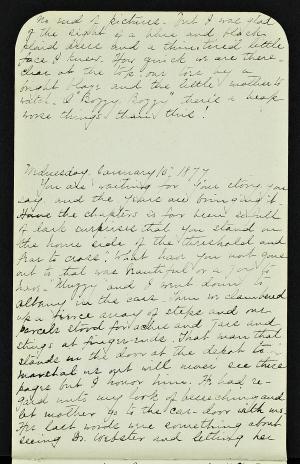 no end of pictures. But I was glad
of the sight in a blue and black
plaid dress and a little
face I knew. How quick we are there
clear at the top; our by a
bright and the little mother to
watch. O "Bozzy Bozzy" there's a heap
worse things than this!
Wednesday, January 10, 1877
You are waiting for your story you
say, and the years are bringing it.
Have the chapters so far been so full
of dark surprises that you stand on
the home side of the threshold and
fear to cross? What have you not gone
out to that was beautiful or a joy to
have. Muzzy and I went down to
Albany in the cars. Then we clambered
up a fierce array of steps and our
parcels stood for ache and and
things at fingers ends. That man that
stands in the door at the depot to
marshal us out will never see these
pages but I honor him. He had re-
gard unto my look of beseeching and
let mother go to the car-door with us.
Her last words were something about
seeing Dr. Webster and letting her